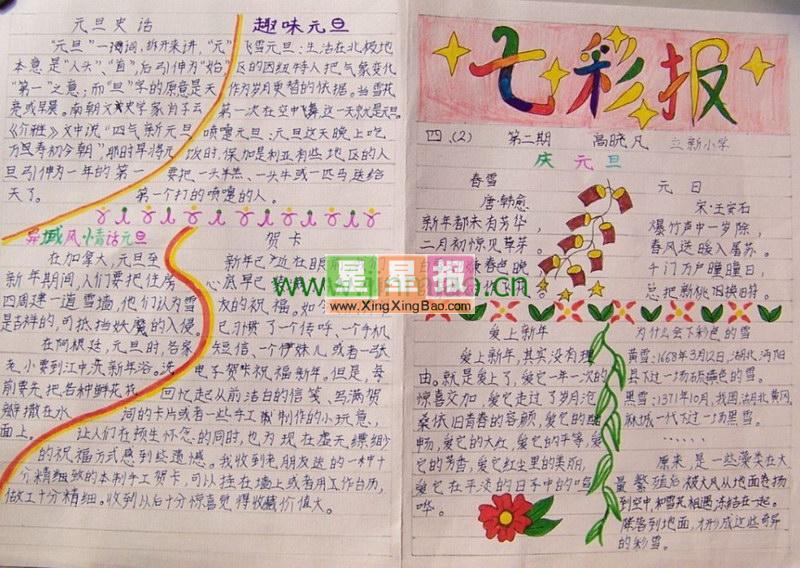 元旦史话
"元旦"一词,拆开来讲,"元"
本意是"人头"、"首",后引伸为"始"
"第一"之意;而"旦"字的原意是天
亮或早晨。南朝文史学家肖子云
《介雅》文中说"四气新元旦,
万民寿初今朝"那时早将元
旦引伸为一年的第一
天了。
趣味元旦
飞雪元旦:生活在北极地
区的因纽特人把气象变化
作为岁月更替的依据。当雪花
第一次在空中飞舞这一天就是元旦。
喷嚏元旦:元旦这天晚上吃
饭时,保加利亚有些地区的人
要把一头羊羔、一头牛或一匹马送给
第一个打的喷嚏的人。
异域风情话元旦
在加拿大,元旦至
新年期间,人们要把住房
四周建一道雪墙,他们认为雪
是吉祥的,可抵挡妖魔的入侵。
在阿根廷,元旦时,各家
老小要到江中洗新年浴。洗
前要先把各种鲜花花
瓣撒在水
面上。
贺卡
新年已近在眼
心底早已
友的祝福。如今
已习惯了一个传呼、一个手机
短信、一个伊妹儿或者一张
电子贺卡祝福新年。但是,每
回忆起从前洁白的信笺、写满贺
词的卡片或者一些手工制作的小玩意,
让人们在顿生怀念的同时,也为现在虚无缥缈
的祝福方式感到些遗憾。我收到老朋友送的一种十
分精细致的本制手工贺卡,可以挂在墙上或者用工作台历,
做工十分精细。收到以后十分惊喜觉得收藏价值大。
七彩报
四.(2) 第二期 高晓凡 立新小学
庆元旦
春雪
唐·韩愈
新年都未有芳华,
二月初惊见草芽。
春色晚
元日
宋·王安石
爆竹声中一岁除,
春风送暖入屠苏。
千门万户曈曈日,
总把新桃旧换旧符。
爱上新年
爱上新年,其实没有理
由。就是爱上了,爱它一年一次的
惊喜交加,爱它走过了岁月沧
桑依旧青春的容颜,爱它的酣
畅,爱它的大红,爱它的平等,爱
它的芳香,爱它红尘里的美丽,
爱它在平淡的日子中的喧
哗。
为什么会下彩色的雪
黄雪:1668年3月12日,湖北沔阳
县下过一场硫磺色的雪。
黑雪:1371年10月,我国湖北黄冈
麻城一代下过一场黑雪。
……
原来,是一些藻类在大
量繁殖后被大风从地面卷扬
到空中,和雪花相遇,冻结在一起。
降落到地面,才形成这些奇异
的彩雪。
星星报
www.XingXingBao.com